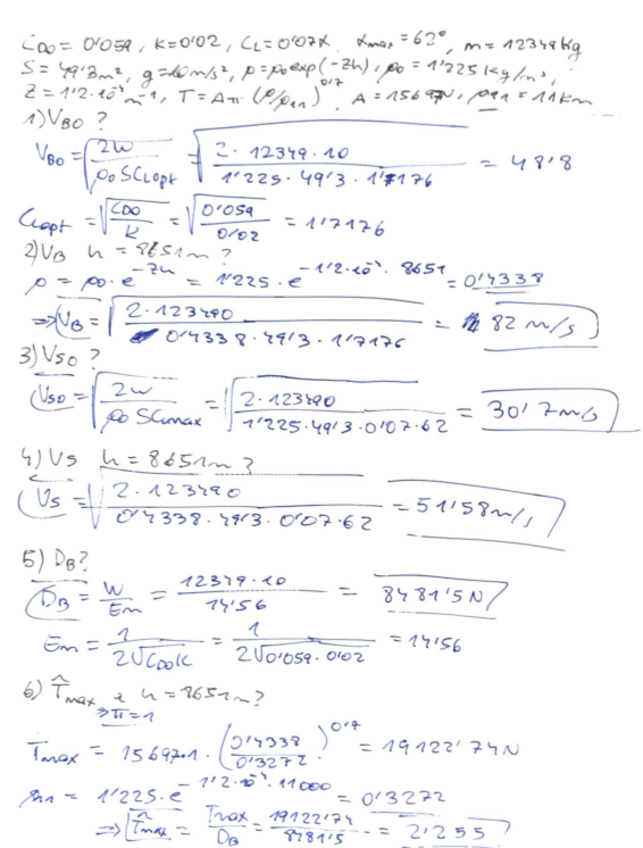 C_D0 = 0'059, K = 0'02, C_L = 0'07α, α_max = 62°, m = 12349 kg
S = 49'3 m², g = 10 m/s², ρ = ρ0 exp(-Zh), ρ0 = 1'225 kg/m³,
Z = 1'2·10⁻⁴ m⁻¹, T = Aπ(ρ/ρ11)^0'7, A = 15697 N, ρ11 = 11 km
1) V_B0?
V_B0 = √(2W / ρ0 S C_Lopt) = √(2·12349·10 / 1'225·49'3·1'7176) = 48'8
C_Lopt = √(C_D0 / K) = √(0'059 / 0'02) = 1'7176
2) V_B h = 8651 m?
ρ = ρ0·e^(-Zh) = 1'225·e^(-1'2·10⁻⁴·8651) = 0'4338
⇒ V_B = √(2·123490 / 0'4338·49'3·1'7176) = 82 m/s
3) V_S0?
V_S0 = √(2W / ρ0 S C_Lmax) = √(2·123490 / 1'225·49'3·0'07·62) = 30'7 m/s
4) V_S h = 8651 m?
V_S = √(2·123490 / 0'4338·49'3·0'07·62) = 51'58 m/s
5) D_B?
D_B = W / E_m = 12349·10 / 14'56 = 8481'5 N
E_m = 1 / 2√(C_D0 K) = 1 / 2√(0'059·0'02) = 14'56
6) T̂_max a h = 8651 m?
⇒ π = 1
T_max = 15697·1·(0'4338 / 0'3272)^0'7 = 19122'74 N
ρ11 = 1'225·e^(-1'2·10⁻⁴·11000) = 0'3272
⇒ T̂_max = T_max / D_B = 19122'74 / 8481'5 = 2'255